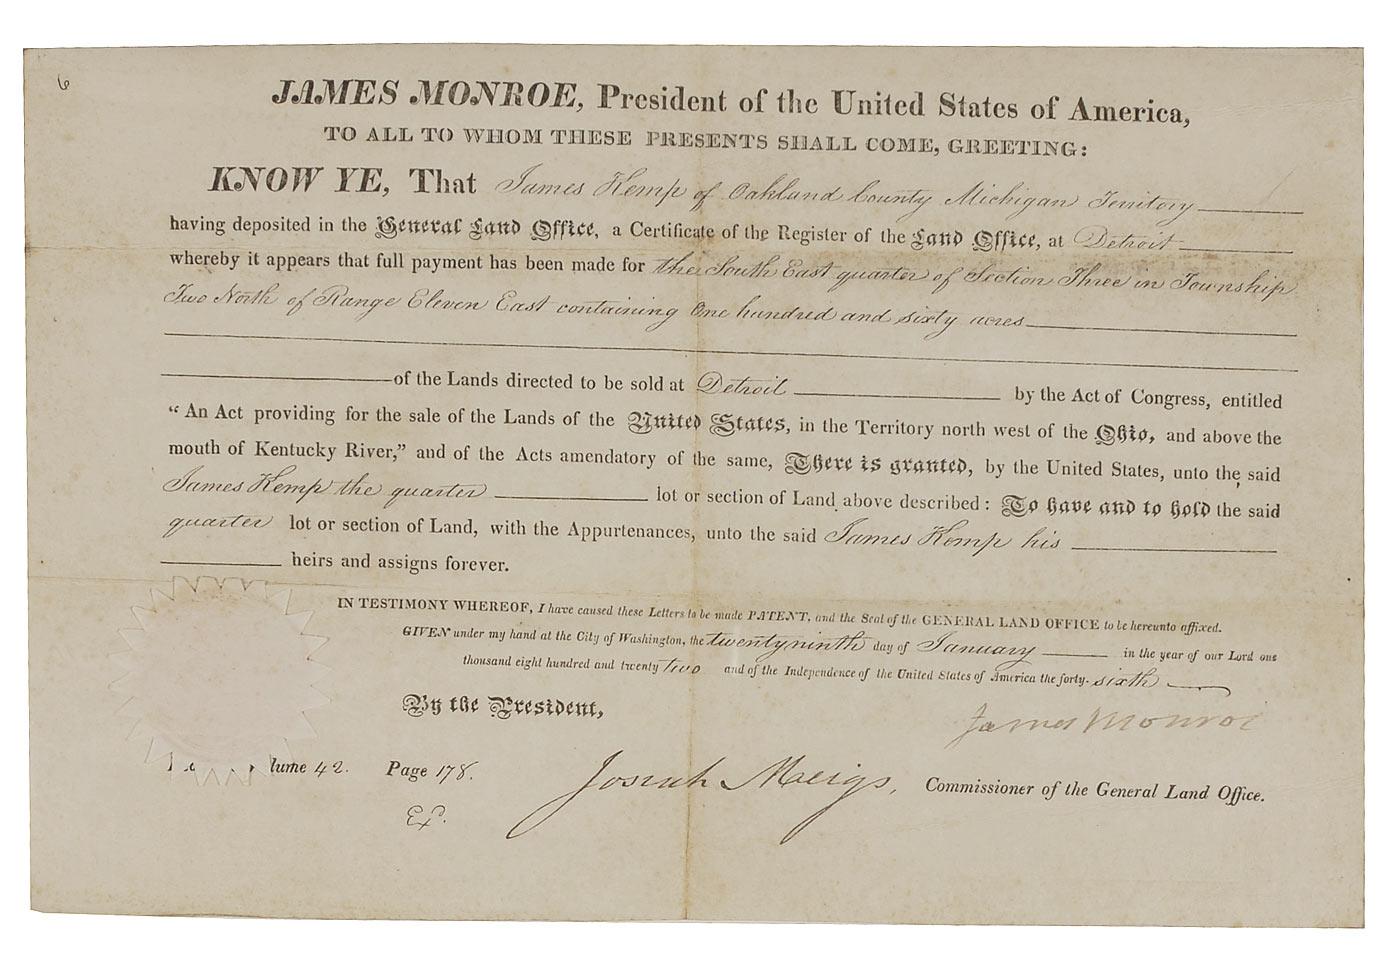 6
JAMES MONROE, President of the United States of America,
TO ALL TO WHOM THESE PRESENTS SHALL COME, GREETING:
KNOW YE, That James Hemp of Oakland County Michigan Territory
having deposited in the General Land Office, a Certificate of the Register of the Land Office, at Detroit
whereby it appears that full payment has been made for the South East quarter of Section Three in Township
Two North of Range Eleven East containing One hundred and sixty acres
of the Lands directed to be sold at Detroit by the Act of Congress, entitled
"An Act providing for the sale of the Lands of the United States, in the Territory north west of the Ohio, and above the
mouth of Kentucky River," and of the Acts amendatory of the same, There is granted, by the United States, unto the said
James Hemp the quarter lot or section of Land above described: To have and to hold the said
quarter lot or section of Land, with the Appurtenances, unto the said James Hemp his
heirs and assigns forever.
IN TESTIMONY WHEREOF, I have caused these Letters to be made PATENT, and the Seal of the GENERAL LAND OFFICE to be hereunto affixed.
GIVEN under my hand at the City of Washington, the twenty ninth day of January in the year of our Lord one
thousand eight hundred and twenty two and of the Independence of the United States of America the forty-sixth
By the President,
James Monroe
Josiah Meigs, Commissioner of the General Land Office.
lume 42. Page 178.
Exd.